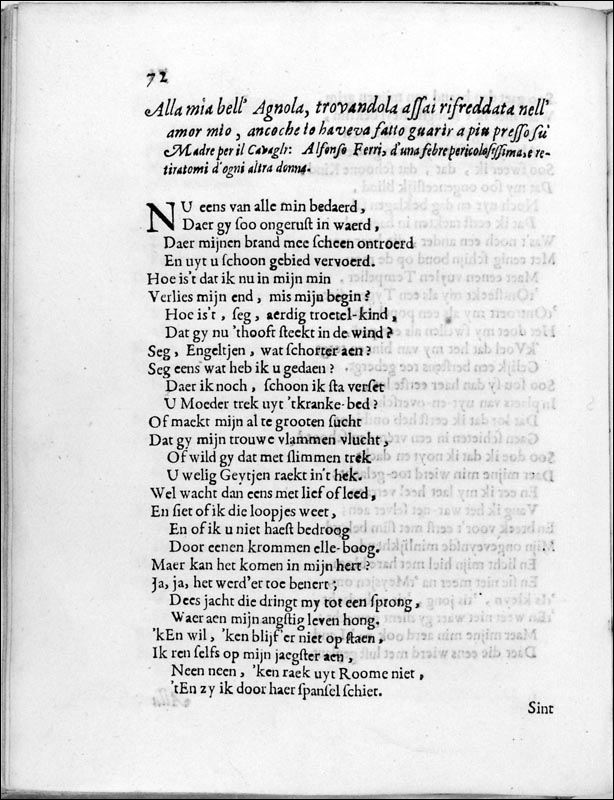 72
Alla mia bell' Agnola, trovandola aſſai rifreddata nell'
amor mio, ancoche io haveva fatto guarir a piu preſſo ſù
Madre per il Cavaglr: Alfonſo Ferri, d'una febre pericoloſiſſima, e re-
tiratomi d'ogni altra donna.
NU eens van alle min bedaerd,
Daer gy ſoo ongeruſt in waerd,
Daer mijnen brand mee ſcheen ontroerd
En uyt u ſchoon gebied vervoerd.
Hoe is't dat ik nu in mijn min
Verlies mijn end, mis mijn begin?
Hoe is't, ſeg, aerdig troetel-kind,
Dat gy nu 'thooft ſteekt in de wind?
Seg, Engeltjen, wat ſchorter aen?
Seg eens wat heb ik u gedaen?
Daer ik noch, ſchoon ik ſta verſet
U Moeder trek uyt 'tkranke-bed?
Of maekt mijn al te grooten ſucht
Dat gy mijn trouwe vlammen vlucht,
Of wild gy dat met ſlimmen trek
U welig Geytjen raekt in't hek.
Wel wacht dan eens met lief of leed,
En ſiet of ik die loopjes weet,
En of ik u niet haeſt bedroog
Door eenen krommen elle-boog.
Maer kan het komen in mijn hert?
Ja, ja, het werd'er toe benert;
Dees jacht die dringt my tot een ſprong,
Waer aen mijn angſtig leven hong.
'kEn wil, 'ken blijf'er niet op ſtaen,
Ik ren ſelfs op mijn jaegſter aen,
Neen neen, 'ken raek uyt Roome niet,
'tEn zy ik door haer ſpanſel ſchiet.
Sint